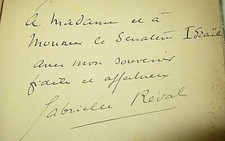 A Madame et à
Monsieur le Sénateur Israël
avec mon souvenir
fidèle et affectueux
Gabrielle Réval